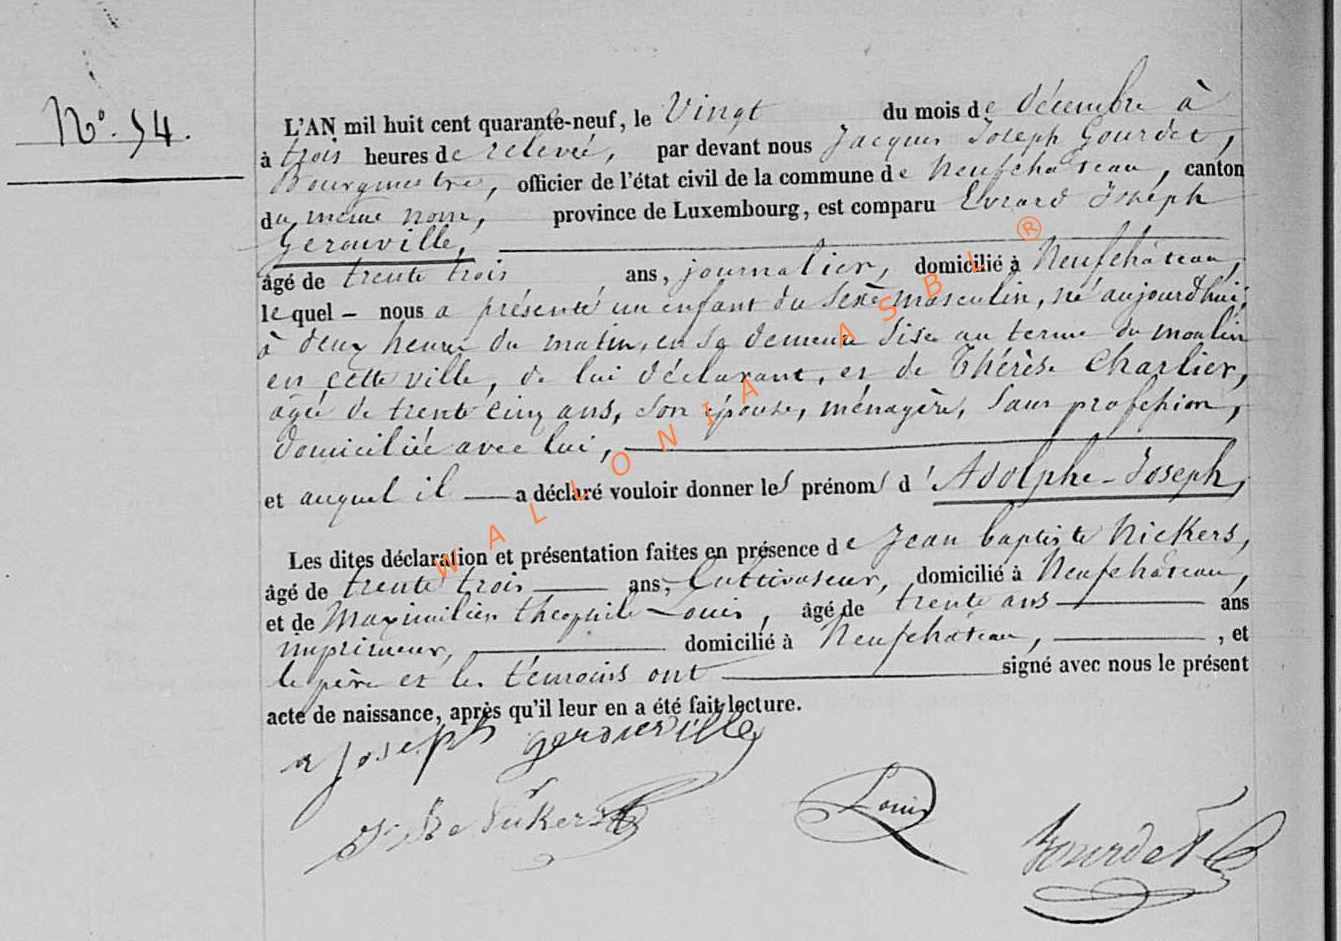 N° 54.
L'AN mil huit cent quarante-neuf, le Vingt du mois de décembre à
à trois heures de relevée, par devant nous Jacques Joseph Gourdet,
Bourgmestre, officier de l'état civil de la commune de Neufchâteau, canton
du même nom, province de Luxembourg, est comparu Evrard Joseph
Gerouville,
âgé de trente trois ans, journalier, domicilié à Neufchâteau,
lequel — nous a présenté un enfant du sexe masculin, né aujourd'hui,
à deux heures du matin, en sa demeure sise au terme du moulin
en cette ville, de lui déclarant, et de Thérèse Charlier,
agée de trente cinq ans, son épouse, ménagère, sans profession,
domiciliée avec lui,
et auquel il — a déclaré vouloir donner les prénoms d'Adolphe-Joseph,
Les dites déclaration et présentation faites en présence de Jean baptiste Nickers,
âgé de trente trois ans, Cultivateur, domicilié à Neufchâteau,
et de Maximilien théophile Louis, âgé de trente ans ans
imprimeur, domicilié à Neufchâteau, , et
le père et les témoins ont signé avec nous le présent
acte de naissance, après qu'il leur en a été fait lecture.
Joseph gerouville
Nickers Louis
Gourdet
WALLONIA ASBL ®